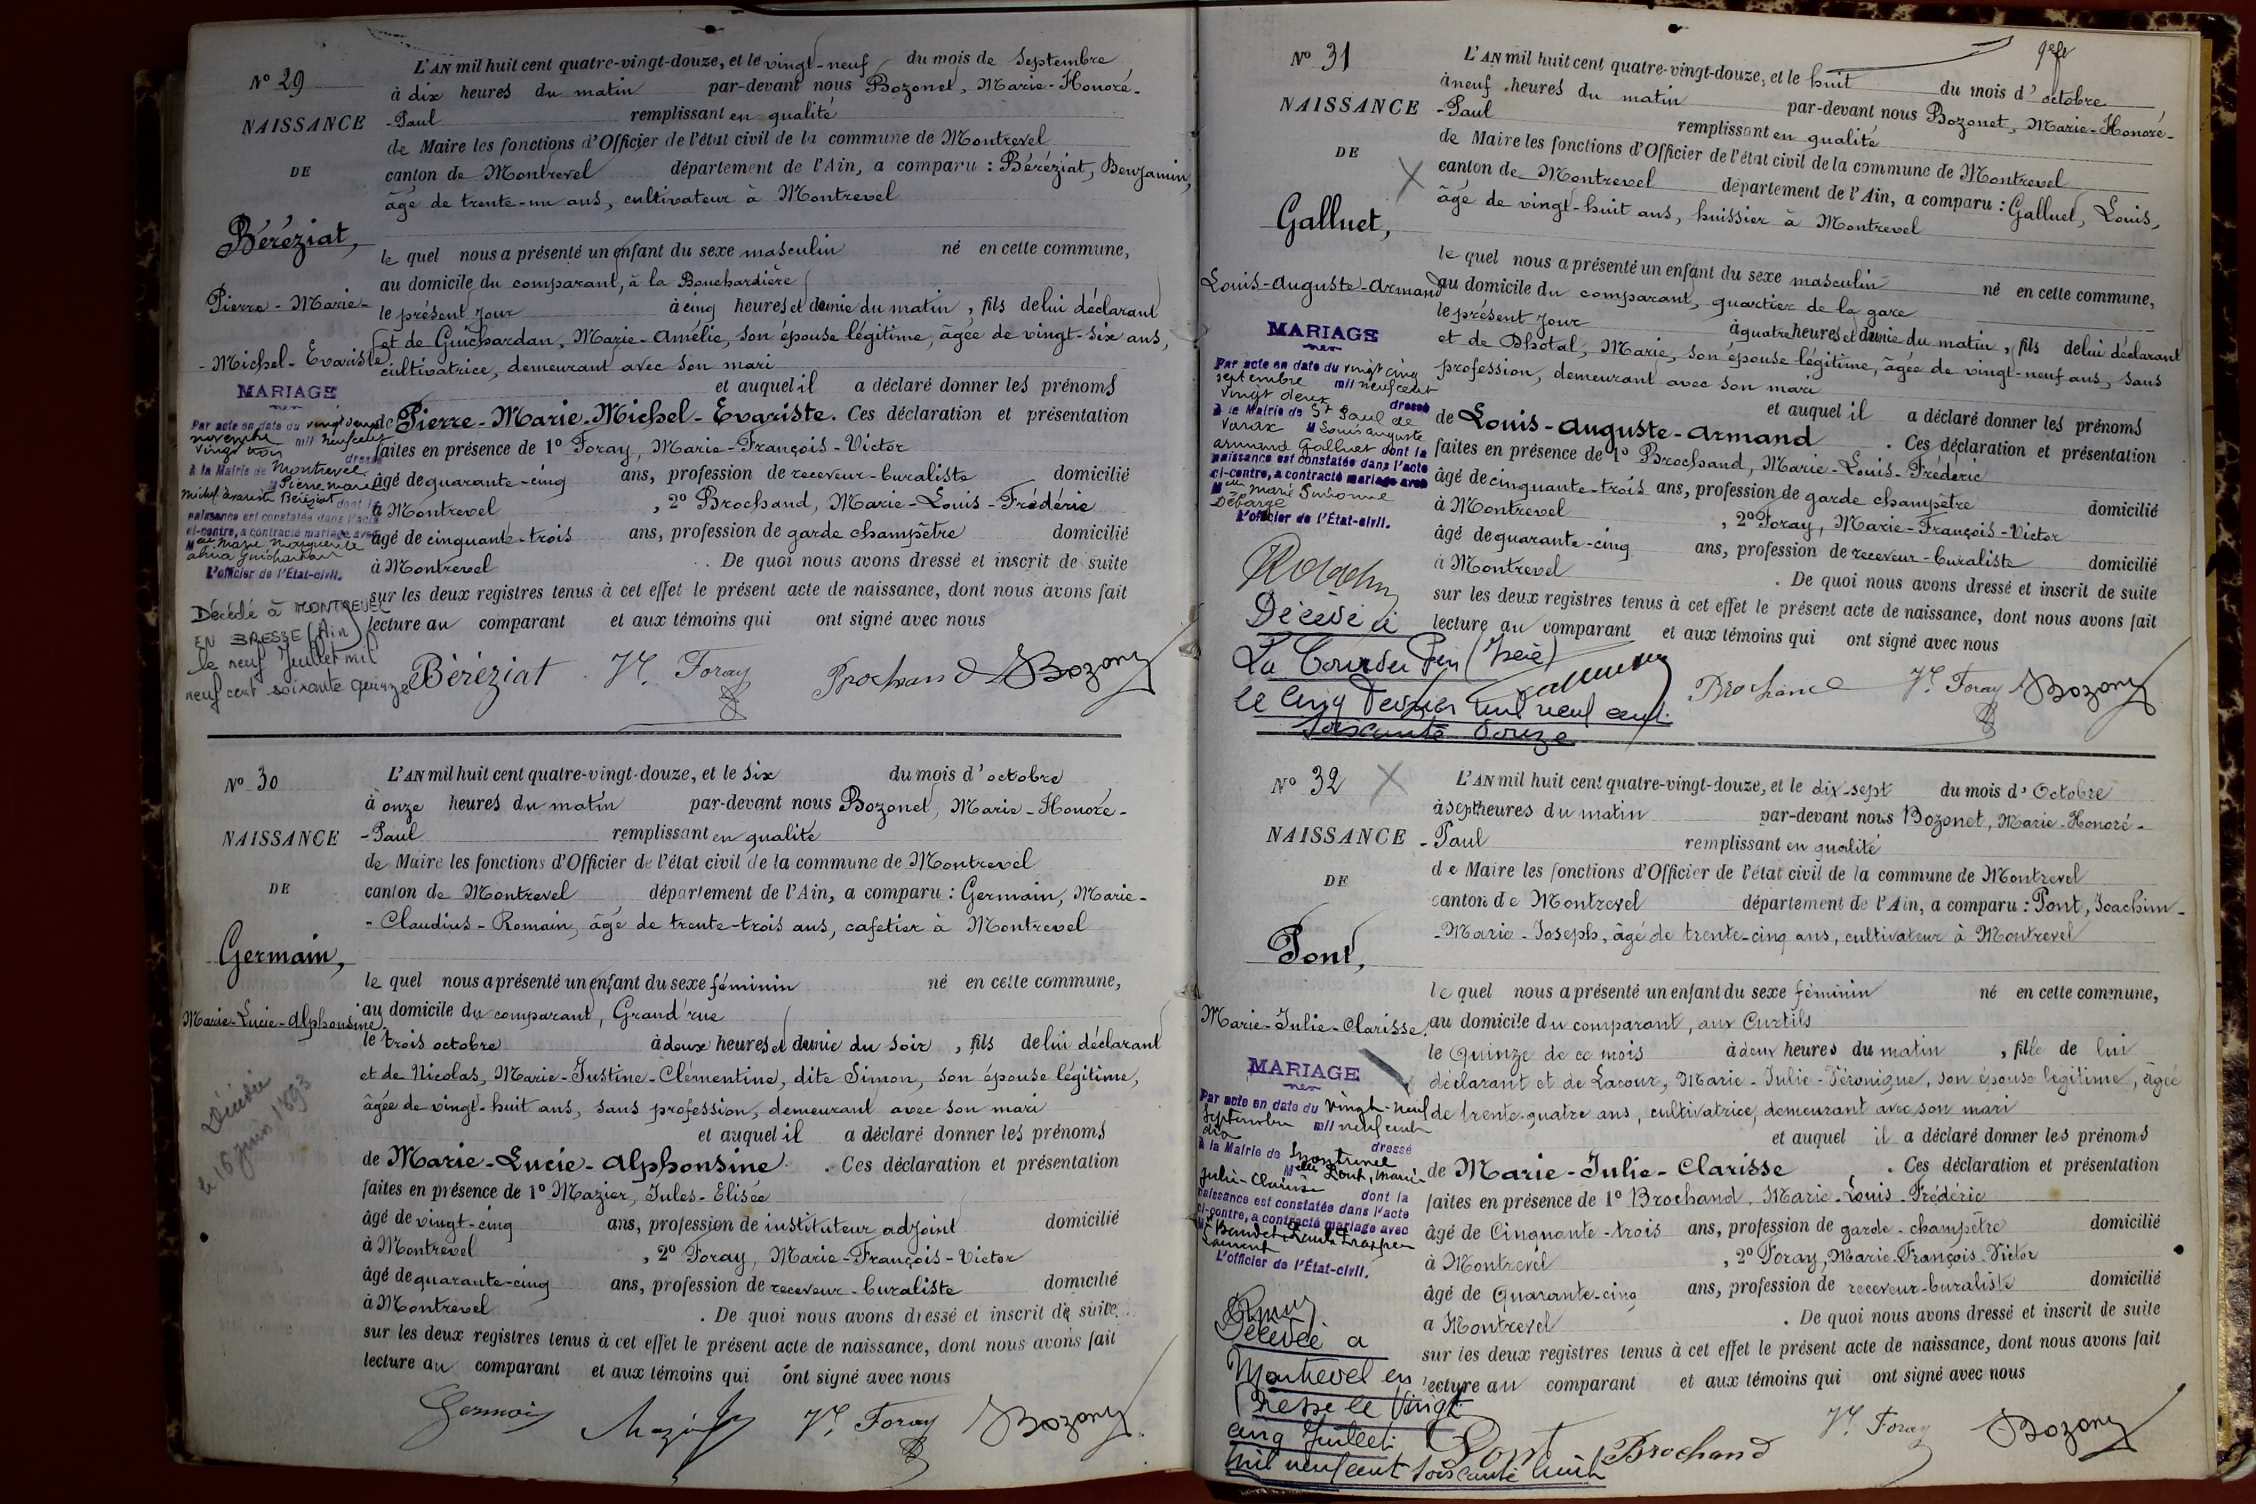 N° 29
NAISSANCE
DE
Béréziat,
Pierre-Marie-
-Michel-Evariste
MARIAGE
Par acte en date du vingt deux
novembre mil neuf cent
vingt trois
dressé
à la Mairie de Montrevel
M Pierre Marie
Michel Evariste Béréziat dont la
naissance est constatée dans l'acte
ci-contre, a contracté mariage avec
Mlle Marie Marguerite
Guichardan
L'officier de l'État-civil.
Décédé à MONTREVEL
EN BRESSE (Ain)
le neuf Juillet mil
neuf cent soixante quinze
L'AN mil huit cent quatre-vingt-douze, et le vingt-neuf du mois de Septembre
à dix heures du matin par-devant nous Bozonet, Marie-Honoré-
-Paul remplissant en qualité
de Maire les fonctions d'Officier de l'état civil de la commune de Montrevel
canton de Montrevel département de l'Ain, a comparu : Béréziat, Benjamin,
âgé de trente-un ans, cultivateur à Montrevel
le quel nous a présenté un enfant du sexe masculin né en cette commune,
au domicile du comparant, à la Bouchardière
le présent jour à cinq heures et demie du matin, fils de lui déclarant
et de Guichardan, Marie-Amélie, son épouse légitime, âgée de vingt-six ans,
cultivatrice, demeurant avec son mari
et auquel il a déclaré donner les prénoms
de Pierre-Marie-Michel-Evariste. Ces déclaration et présentation
faites en présence de 1° Foray, Marie-François-Victor
âgé de quarante-cinq ans, profession de receveur-buraliste domicilié
à Montrevel , 2° Brochand, Marie-Louis-Frédéric
âgé de cinquante-trois ans, profession de garde champêtre domicilié
à Montrevel . De quoi nous avons dressé et inscrit de suite
sur les deux registres tenus à cet effet le présent acte de naissance, dont nous avons fait
lecture au comparant et aux témoins qui ont signé avec nous
Béréziat Vr Foray Brochand Bozonet
N° 30
NAISSANCE
DE
Germain,
Marie-Lucie-Alphonsine
Décédée
le 16 juin 1893
L'AN mil huit cent quatre-vingt-douze, et le six du mois d'octobre
à onze heures du matin par-devant nous Bozonet, Marie-Honoré-
-Paul remplissant en qualité
de Maire les fonctions d'Officier de l'état civil de la commune de Montrevel
canton de Montrevel département de l'Ain, a comparu : Germain, Marie-
-Claudius-Romain, âgé de trente-trois ans, cafetier à Montrevel
le quel nous a présenté un enfant du sexe féminin né en cette commune,
au domicile du comparant, Grand'rue
le trois octobre à deux heures et demie du soir, fils de lui déclarant
et de Nicolas, Marie-Justine-Clémentine, dite Simon, son épouse légitime,
âgée de vingt-huit ans, sans profession, demeurant avec son mari
et auquel il a déclaré donner les prénoms
de Marie-Lucie-Alphonsine . Ces déclaration et présentation
faites en présence de 1° Mazier, Jules-Elisée
âgé de vingt-cinq ans, profession de instituteur adjoint domicilié
à Montrevel , 2° Foray, Marie-François-Victor
âgé de quarante-cinq ans, profession de receveur-buraliste domicilié
à Montrevel . De quoi nous avons dressé et inscrit de suite
sur les deux registres tenus à cet effet le présent acte de naissance, dont nous avons fait
lecture au comparant et aux témoins qui ont signé avec nous
Germain Mazier Vr Foray Bozonet
N° 31
NAISSANCE
DE
Galluet,
Louis-Auguste-Armand
MARIAGE
Par acte en date du vingt cinq
septembre mil neuf cent
vingt deux
dressé
à la Mairie de St Paul de
Varax M Louis Auguste
Armand Galluet dont la
naissance est constatée dans l'acte
ci-contre, a contracté mariage avec
Mlle Marie Simonne
Débarge
L'officier de l'État-civil.
Décédé à
La Tour du Pin (Isère)
le cinq Février mil neuf cent
soixante douze
L'AN mil huit cent quatre-vingt-douze, et le huit du mois d'octobre
à neuf heures du matin par-devant nous Bozonet, Marie-Honoré-
-Paul remplissant en qualité
de Maire les fonctions d'Officier de l'état civil de la commune de Montrevel
canton de Montrevel département de l'Ain, a comparu : Galluet, Louis,
âgé de vingt-huit ans, huissier à Montrevel
le quel nous a présenté un enfant du sexe masculin né en cette commune,
au domicile du comparant, quartier de la gare
le présent jour à quatre heures et demie du matin, fils de lui déclarant
et de Dhôtal, Marie, son épouse légitime, âgée de vingt-neuf ans, sans
profession, demeurant avec son mari
et auquel il a déclaré donner les prénoms
de Louis-Auguste-Armand . Ces déclaration et présentation
faites en présence de 1° Brochand, Marie-Louis-Frédéric
âgé de cinquante-trois ans, profession de garde champêtre domicilié
à Montrevel , 2° Foray, Marie-François-Victor
âgé de quarante-cinq ans, profession de receveur-buraliste domicilié
à Montrevel . De quoi nous avons dressé et inscrit de suite
sur les deux registres tenus à cet effet le présent acte de naissance, dont nous avons fait
lecture au comparant et aux témoins qui ont signé avec nous
Brochand Vr Foray Bozonet
N° 32
NAISSANCE
DE
Pont,
Marie-Julie-Clarisse.
MARIAGE
Par acte en date du vingt-neuf
Septembre mil neuf cent
dix
dressé
à la Mairie de Montrevel
Mlle Pont, Marie
Julie-Clarisse dont la
naissance est constatée dans l'acte
ci-contre, a contracté mariage avec
Laurent
L'officier de l'État-civil.
Décédée à
Montrevel en
Bresse le Vingt
cinq Juillet
mil neuf cent soixante huit
L'AN mil huit cent quatre-vingt-douze, et le dix-sept du mois d'Octobre
à sept heures du matin par-devant nous Bozonet, Marie-Honoré-
-Paul remplissant en qualité
de Maire les fonctions d'Officier de l'état civil de la commune de Montrevel
canton de Montrevel département de l'Ain, a comparu : Pont, Joachim-
-Marie-Joseph, âgé de trente-cinq ans, cultivateur à Montrevel
le quel nous a présenté un enfant du sexe féminin né en cette commune,
au domicile du comparant, aux Curtils
le Quinze de ce mois à deux heures du matin , fille de lui
déclarant et de Lacour, Marie-Julie-Véronique, son épouse légitime, âgée
de trente-quatre ans, cultivatrice, demeurant avec son mari
et auquel il a déclaré donner les prénoms
de Marie-Julie-Clarisse . Ces déclaration et présentation
faites en présence de 1° Brochand, Marie-Louis-Frédéric
âgé de Cinquante-trois ans, profession de garde-champêtre domicilié
à Montrevel , 2° Foray, Marie-François-Victor
âgé de Quarante-cinq ans, profession de receveur-buraliste domicilié
à Montrevel . De quoi nous avons dressé et inscrit de suite
sur les deux registres tenus à cet effet le présent acte de naissance, dont nous avons fait
lecture au comparant et aux témoins qui ont signé avec nous
Pont Brochand Vr Foray Bozonet